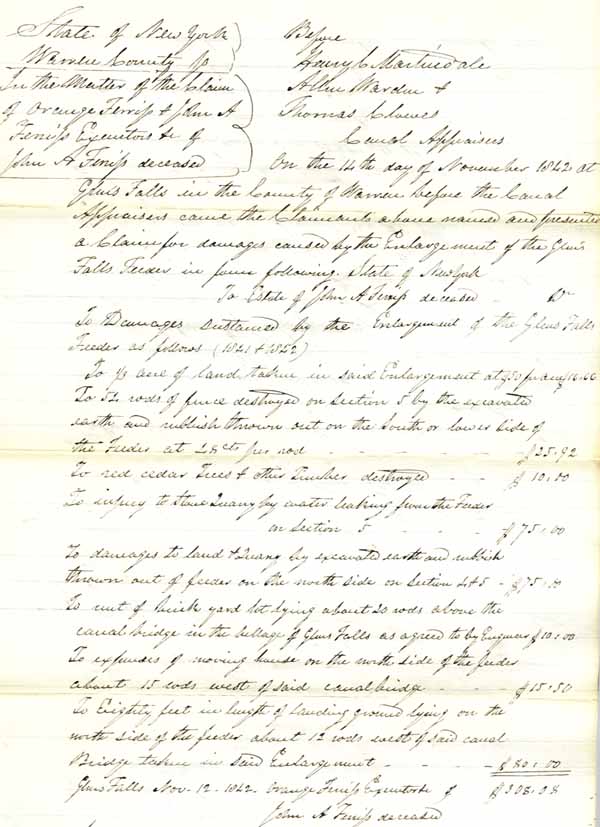 State of New York
Warren County ss
In the Matter of the Claim
of Orange Ferriss & John A
Ferriss Executors &c of
John A Ferriss deceased
Before
Henry C Martindale
Allen Warden &
Thomas Clowes
Canal Appraisers
On the 14th day of November 1842 at
Glens Falls in the County of Warren before the Canal
Appraisers came the Claimants above named and presented
a Claim for damages caused by the Enlargement of the Glens
Falls Feeder in form following. State of New York
To Estate of John A Ferriss deceased - Dr
To Damages Sustained by the Enlargement of the Glens Falls
Feeder as follows (1841 & 1842)
To ⅓ acre of land taken in said Enlargement at $50 pr acre $16.66
To 54 rods of fence destroyed on Section 5 by the excavated
earth and rubbish thrown out on the South or lower side of
the Feeder at 48cts per rod - $25.92
To red cedar Trees & other Timber destroyed - $10.00
To injury to Stone Quarry by water leaking from the Feeder
on Section 5 - $75.00
To damages to land & Quarry by excavated earth and rubbish
thrown out of feeder on the north side on Section 4 & 5 - $75.00
To rent of brick yard lot lying about 20 rods above the
canal bridge in the village of Glens Falls as agreed to by Engineer $10.00
To expenses of moving house on the north side of the feeder
about 15 rods west of said canal bridge - $15.50
To Eighty feet in length of landing ground lying on the
north side of the feeder about 12 rods west of said canal
Bridge taken in said Enlargement - $80.00
Glens Falls Nov. 12. 1842. Orange Ferriss Executor &c of $308.08
John A Ferriss deceased